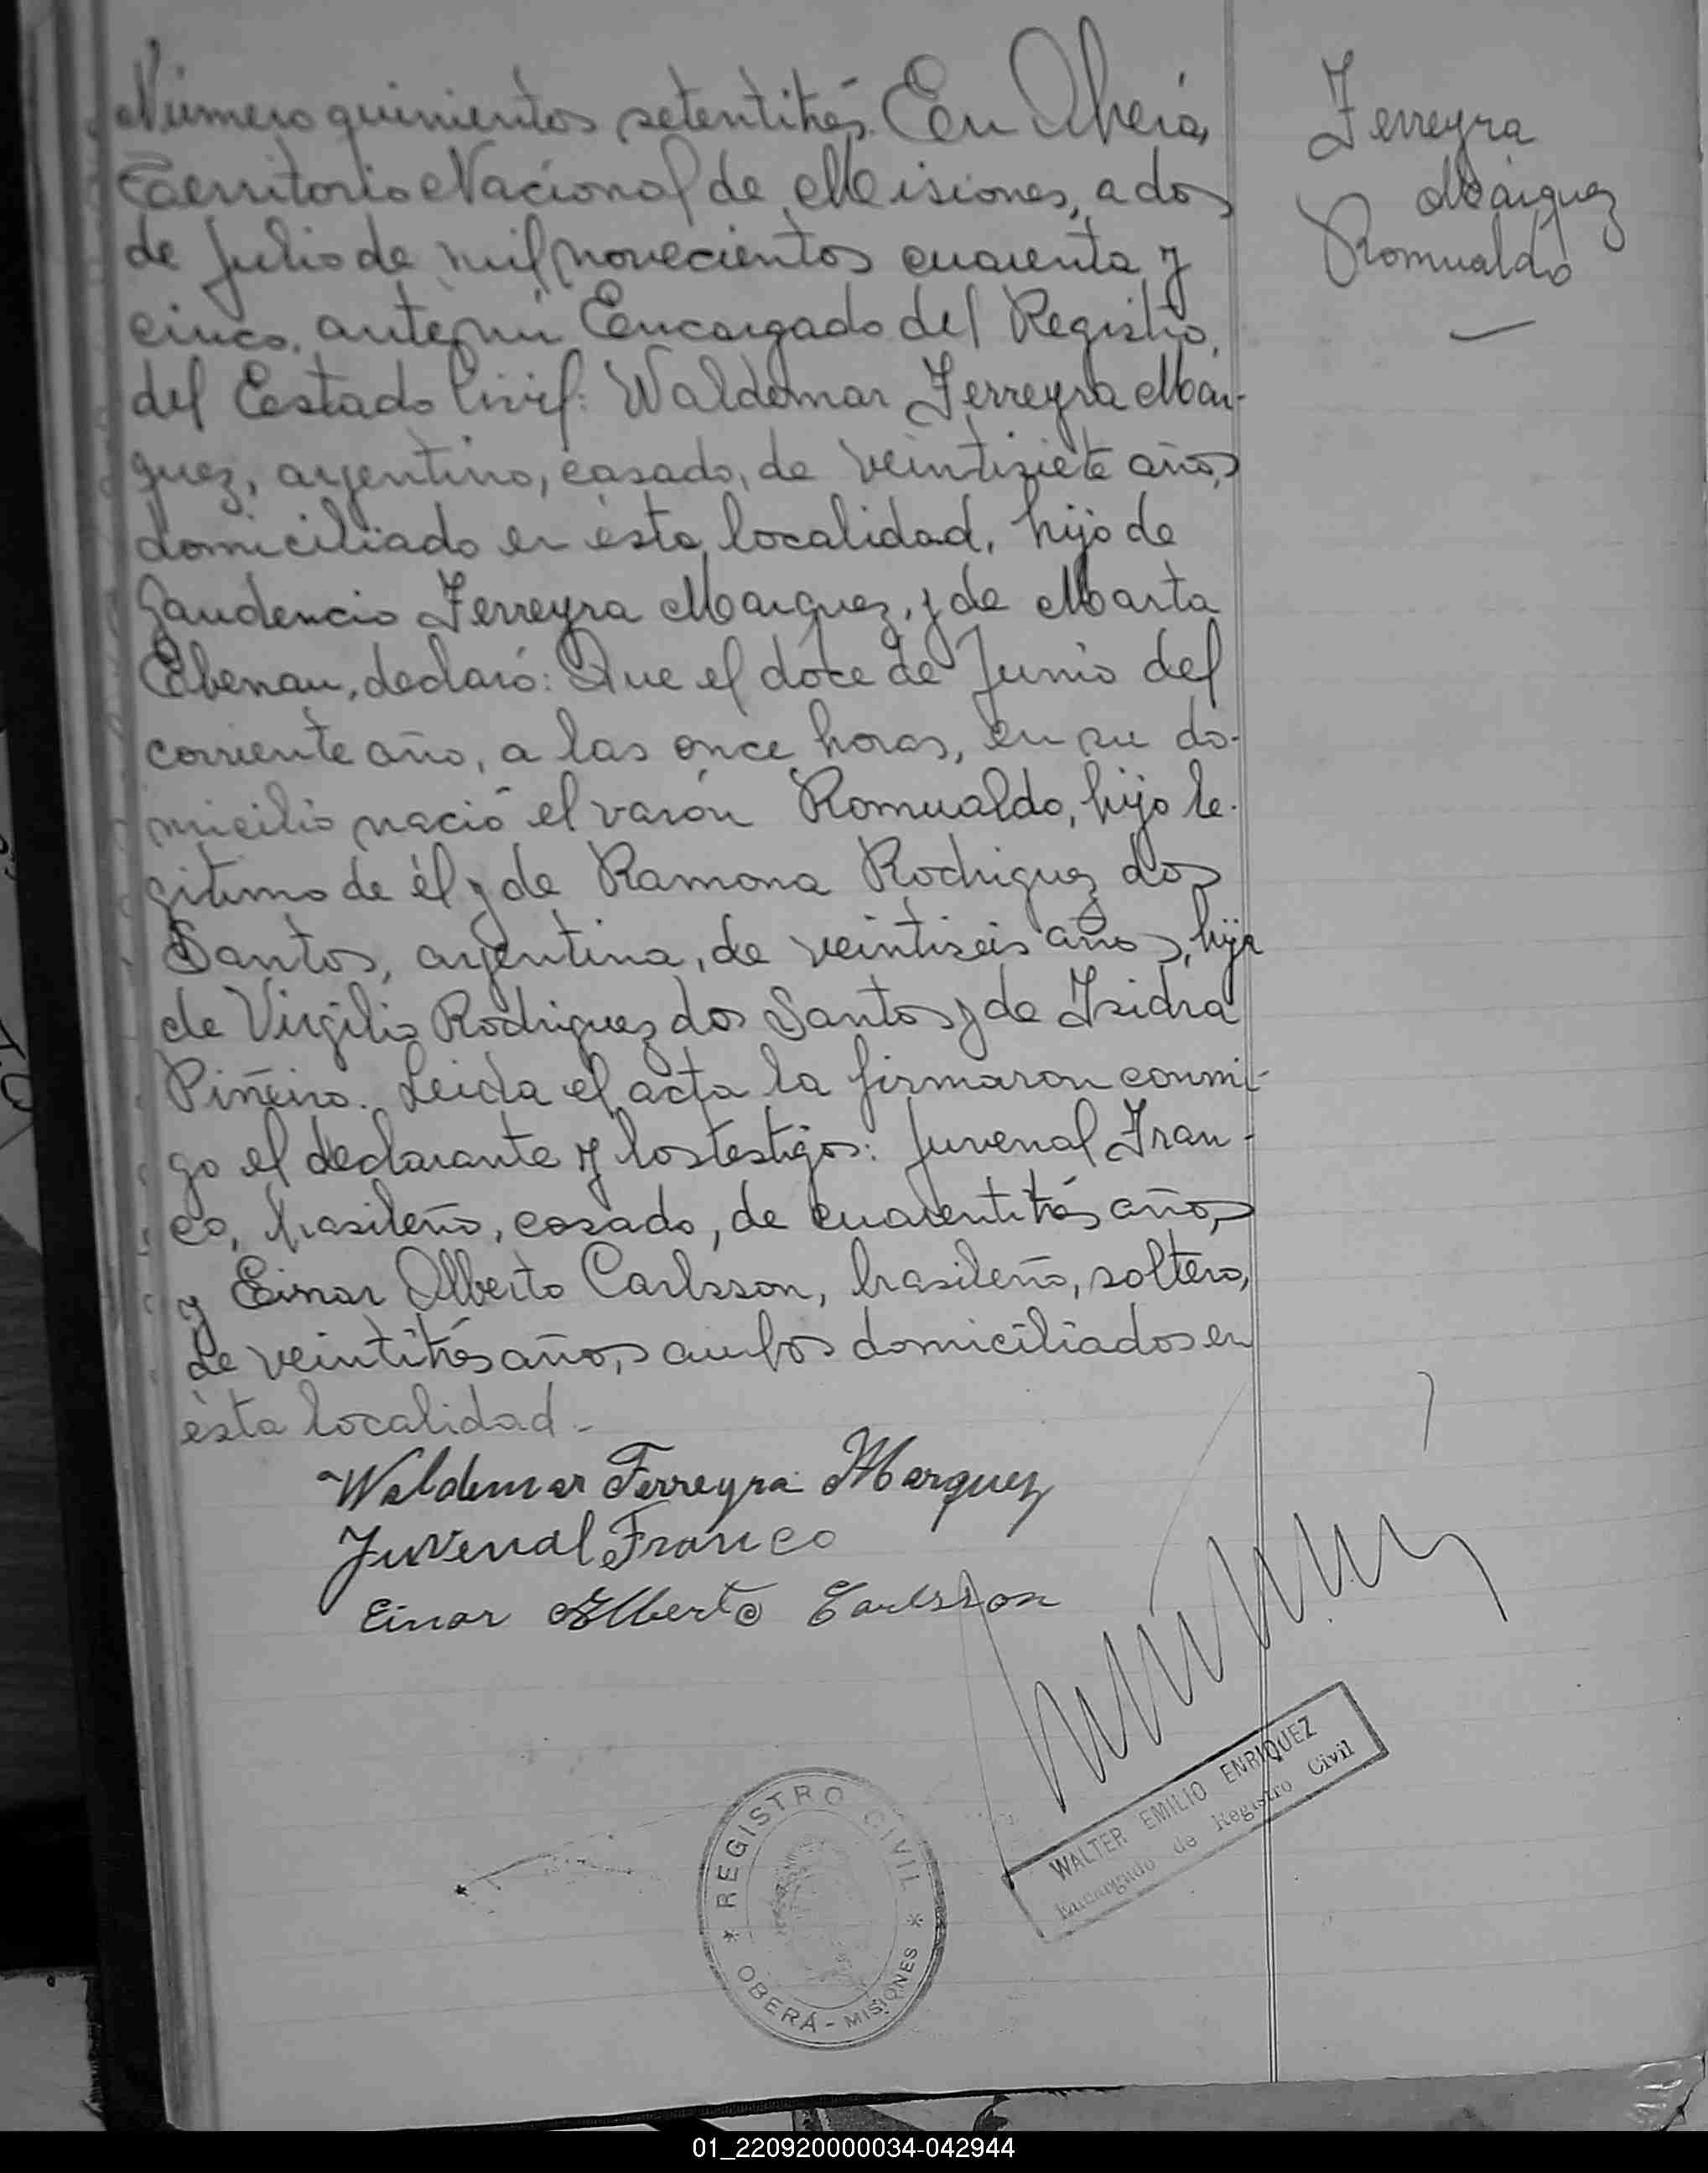 Número quinientos setentitrés. En Oberá,
Territorio Nacional de Misiones, a dos
de Julio de mil novecientos cuarenta y
cinco, ante mi Encargado del Registro
del Estado Civil: Waldemar Ferreyra Már-
quez, argentino, casado, de veintisiete años,
domiciliado en ésta localidad, hijo de
Gaudencio Ferreyra Marquez, y de Marta
Ebenau, declaró: Que el doce de Junio del
corriente año, a las once horas, en su do-
micilio nació el varón Romualdo, hijo le-
gitimo de él y de Ramona Rodriguez dos
Santos, argentina, de veintiseis años, hija
de Virgilio Rodriguez dos Santos y de Isidra
Piñeiro. Leida el acta la firmaron conmi-
go el declarante y los testigos: Juvenal Fran-
co, brasileño, casado, de cuarentitrés años,
y Einar Alberto Carlsson, brasileño, soltero,
de veintitrés años, ambos domiciliados en
ésta localidad.-
Ferreyra
Márquez
Romualdo
Waldemar Ferreyra Marquez
Juvenal Franco
Einar Alberto Carlsson
WALTER EMILIO ENRIQUEZ
Encargado de Registro Civil
* REGISTRO CIVIL *
OBERÁ - MISIONES
01_220920000034-042944